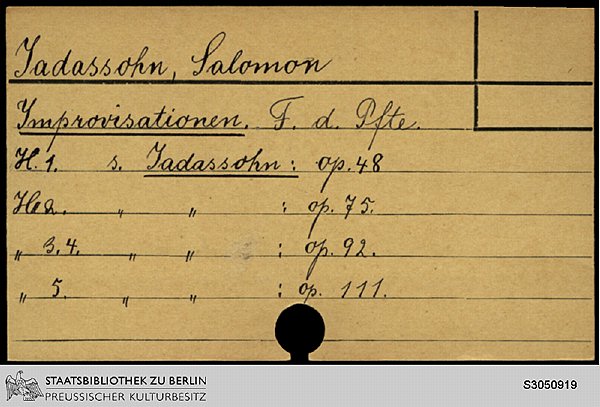 Jadassohn, Salomon
Improvisationen. F. d. Pfte.
H. 1. s. Jadassohn: op. 48
H. 2. " " : op. 75.
" 3. 4. " " : op. 92.
" 5. " " : op. 111.
STAATSBIBLIOTHEK ZU BERLIN
PREUSSISCHER KULTURBESITZ
S3050919